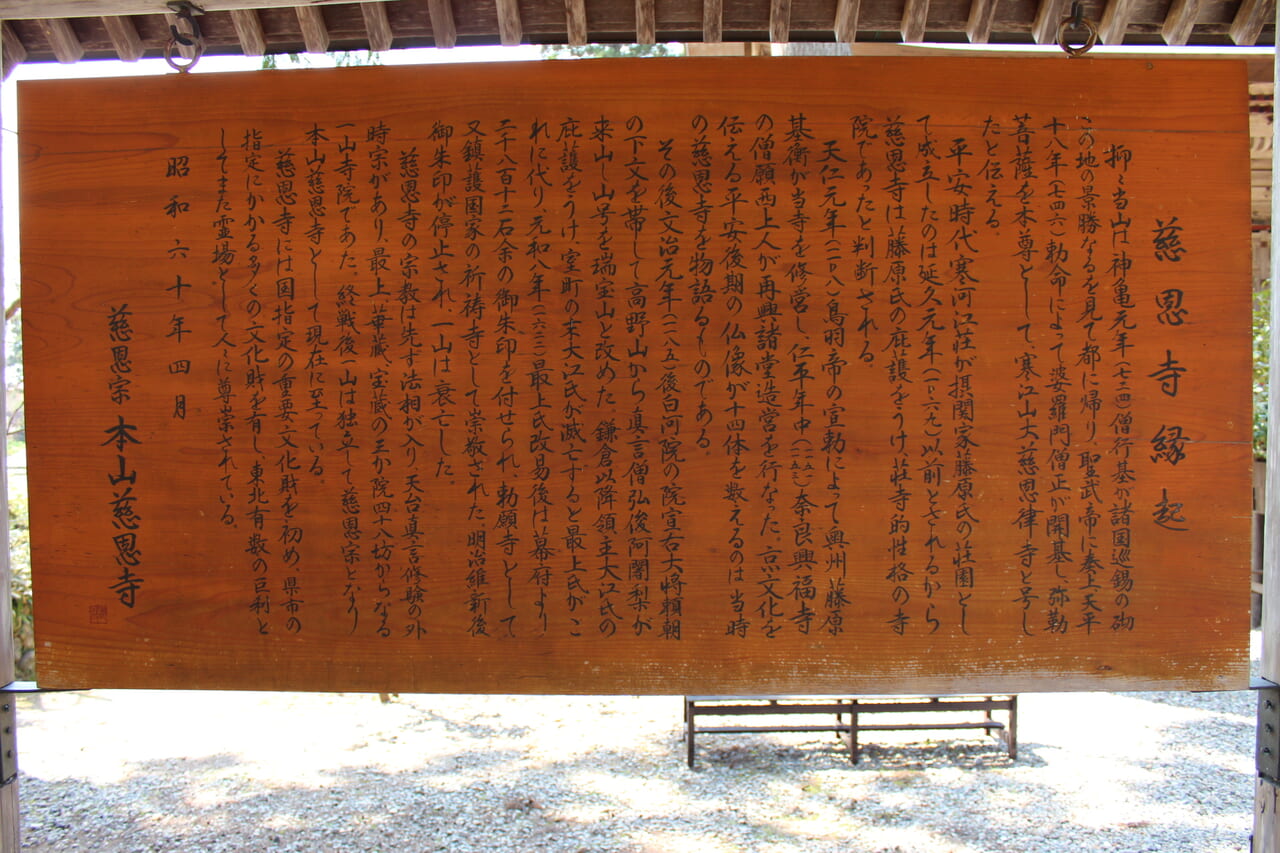 慈恩寺縁起
抑々当山は神亀元年(七二四)僧行基が諸国巡錫の砌
この地の景勝なるを見て都に帰り、聖武帝に奏上、天平
十八年(七四六)勅命によって婆羅門僧正が開基し、弥勒
菩薩を本尊として、寒江山大慈恩律寺と号し
たと伝える。
平安時代寒河江荘が摂関家藤原氏の荘園とし
て成立したのは延久元年(一〇六九)以前とされるから
慈恩寺は藤原氏の庇護をうけ荘寺的性格の寺
院であったと判断される。
天仁元年(一一〇八)鳥羽帝の宣勅によって奥州藤原
基衡が当寺を修営し、仁平年中(一一五三)奈良興福寺
の僧願西上人が再興諸堂造営を行なった、京文化を
伝える平安後期の仏像が十四体を数えるのは当時
の慈恩寺を物語るものである。
その後文治元年(一一八五)後白河院の院宣右大将頼朝
の下文を帯して高野山から真言僧弘俊阿闍梨が
来山し山号を瑞宝山と改めた、鎌倉以降領主大江氏の
庇護をうけ、室町の末大江氏が滅亡すると最上氏がこ
れに代り、元和八年(一六二二)最上氏改易後は幕府より
二千八百十二石余の御朱印を付せられ、勅願寺として
又鎮護国家の祈祷寺として崇敬された、明治維新後
御朱印が停止され、一山は衰亡した。
慈恩寺の宗教は先ず法相が入り、天台真言修験の外
時宗があり、最上、華蔵、宝蔵の三か院四十八坊からなる
一山寺院であった。終戦後一山は独立して慈恩宗となり
本山慈恩寺として現在に至っている。
慈恩寺には国指定の重要文化財を初め、県市の
指定にかかる多くの文化財を有し、東北有数の巨刹と
してまた霊場として人々に尊崇されている。
昭和六十年四月
慈恩宗 本山慈恩寺